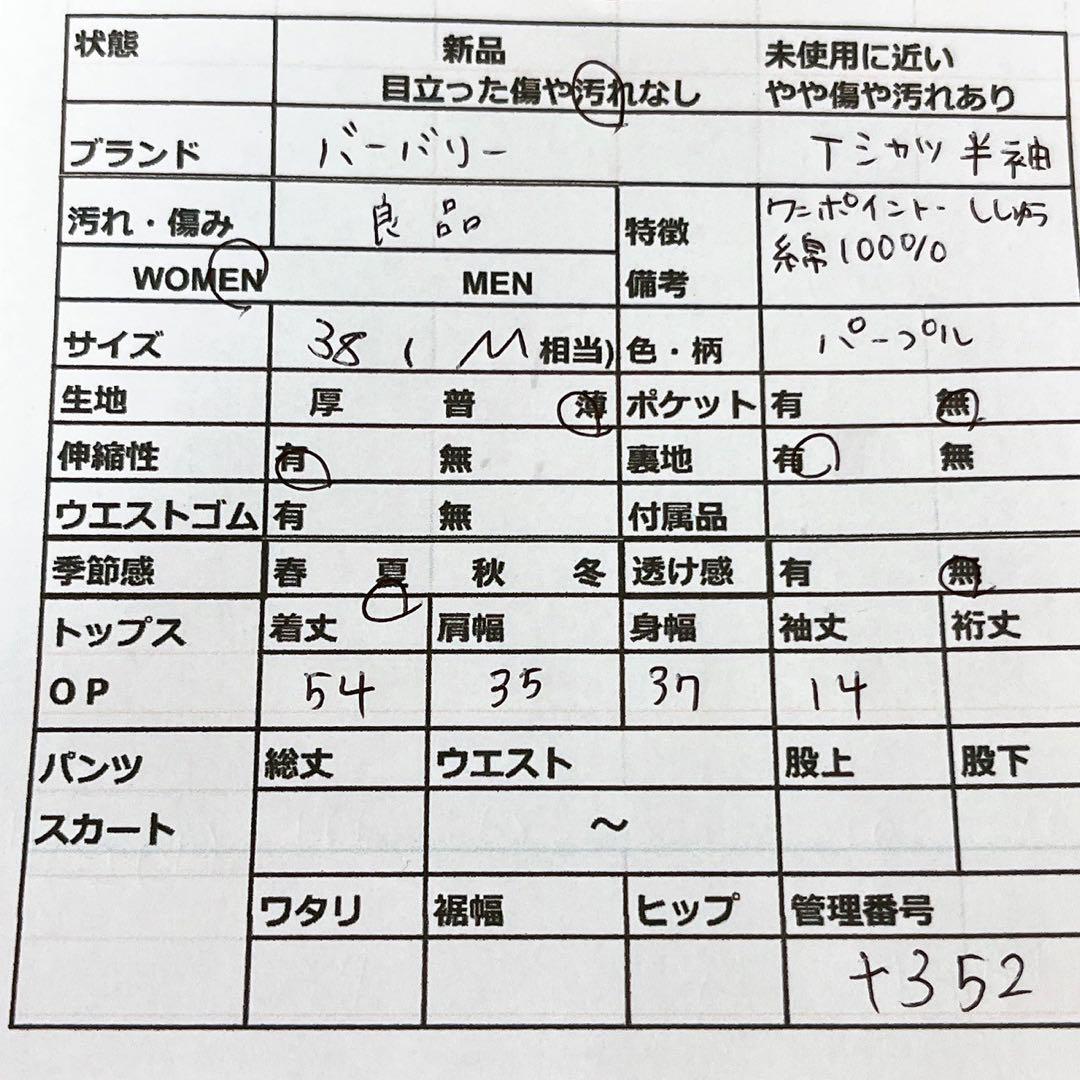 状態 新品 未使用に近い
目立った傷や汚れなし やや傷や汚れあり
ブランド バーバリー Tシャツ 半袖
汚れ・傷み 良品 特徴 ワンポイント ししゅう
備考 綿100%
WOMEN MEN
サイズ 38 ( M 相当) 色・柄 パープル
生地 厚 普 薄 ポケット 有 無
伸縮性 有 無 裏地 有 無
ウエストゴム 有 無 付属品
季節感 春 夏 秋 冬 透け感 有 無
トップス 着丈 肩幅 身幅 袖丈 裄丈
OP 54 35 37 14
パンツ 総丈 ウエスト 股上 股下
スカート ～
ワタリ 裾幅 ヒップ 管理番号
+352